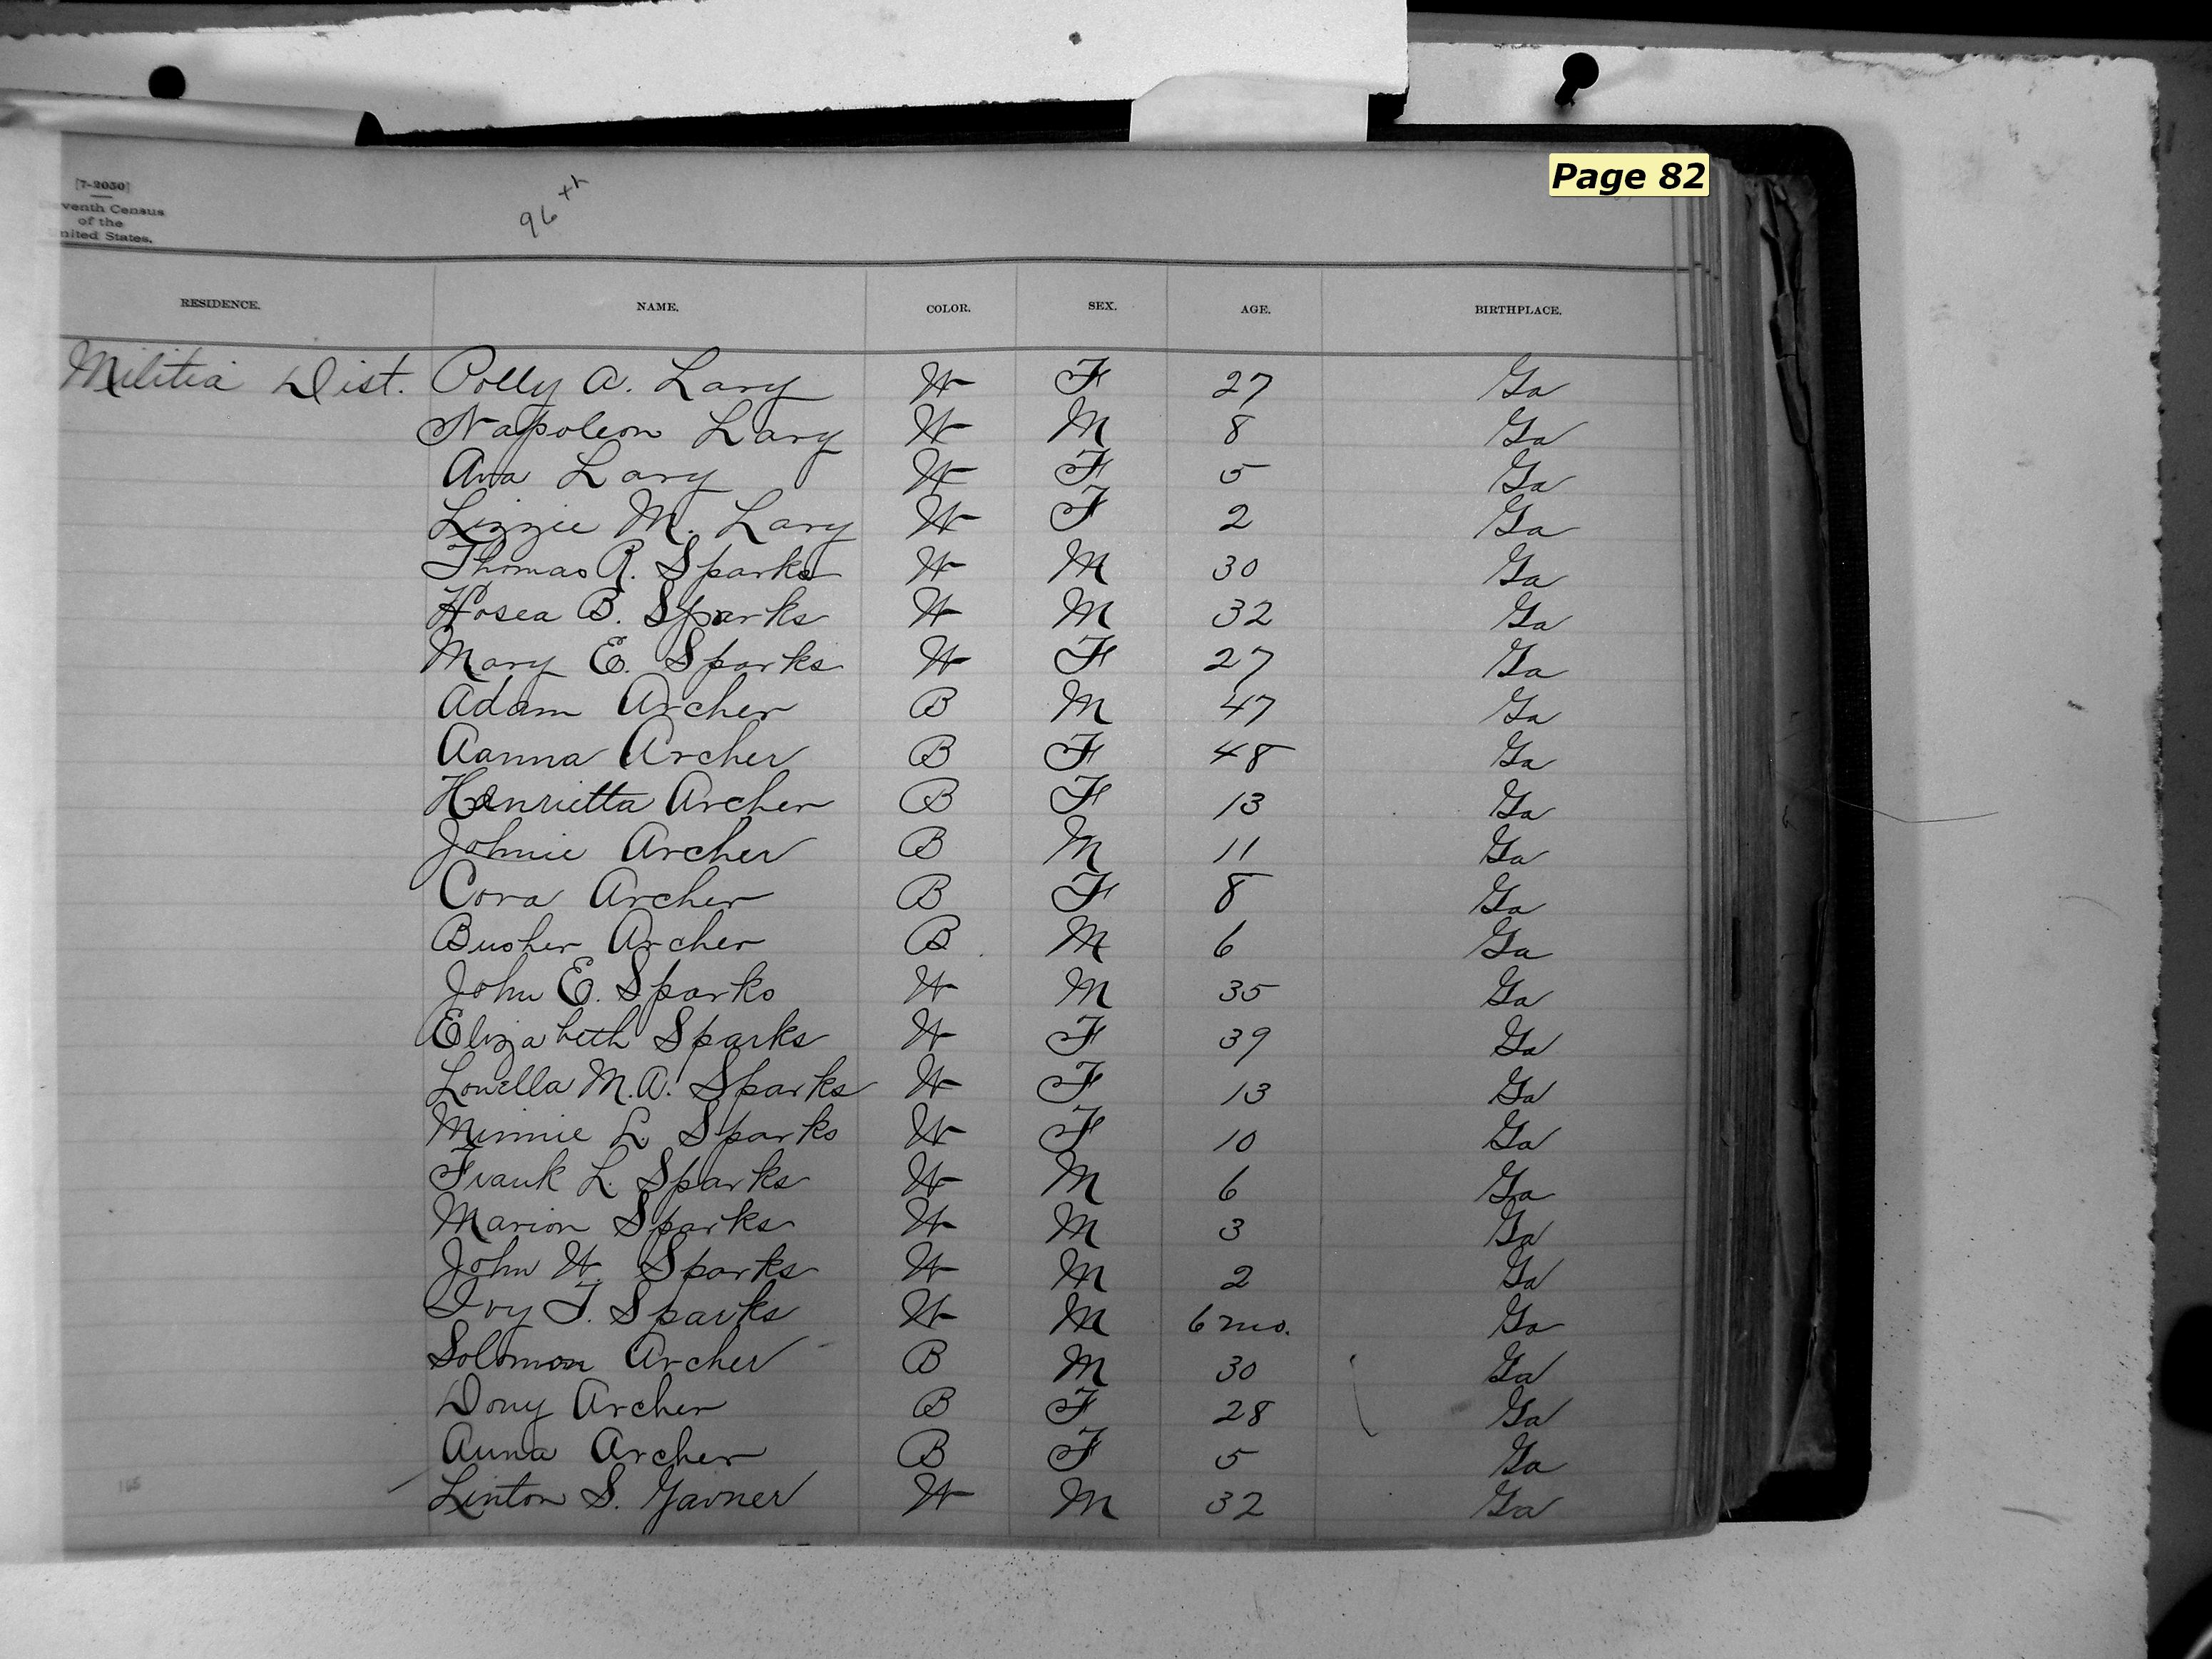 Page 82
[7-2050]
venth Census
of the
nited States.
96th
RESIDENCE. NAME. COLOR. SEX. AGE. BIRTHPLACE.
Militia Dist. Polly A. Lary W F 27 Ga
Napoleon Lary W M 8 Ga
Ava Lary W F 5 Ga
Lizzie M. Lary W F 2 Ga
Thomas R. Sparks W M 30 Ga
Hosea B. Sparks W M 32 Ga
Mary E. Sparks W F 27 Ga
Adam Archer B M 47 Ga
Aanna Archer B F 48 Ga
Henrietta Archer B F 13 Ga
Johnie Archer B M 11 Ga
Cora Archer B F 8 Ga
Busher Archer B M 6 Ga
John E. Sparks W M 35 Ga
Elizabeth Sparks W F 39 Ga
Louella M.A. Sparks W F 13 Ga
Minnie L Sparks W F 10 Ga
Frank L. Sparks W M 6 Ga
Marion Sparks W M 3 Ga
John W. Sparks W M 2 Ga
Ivy T. Sparks W M 6 mo. Ga
Solomon Archer B M 30 Ga
Dony Archer B F 28 Ga
Anna Archer B F 5 Ga
165 Linton S. Garner W M 32 Ga